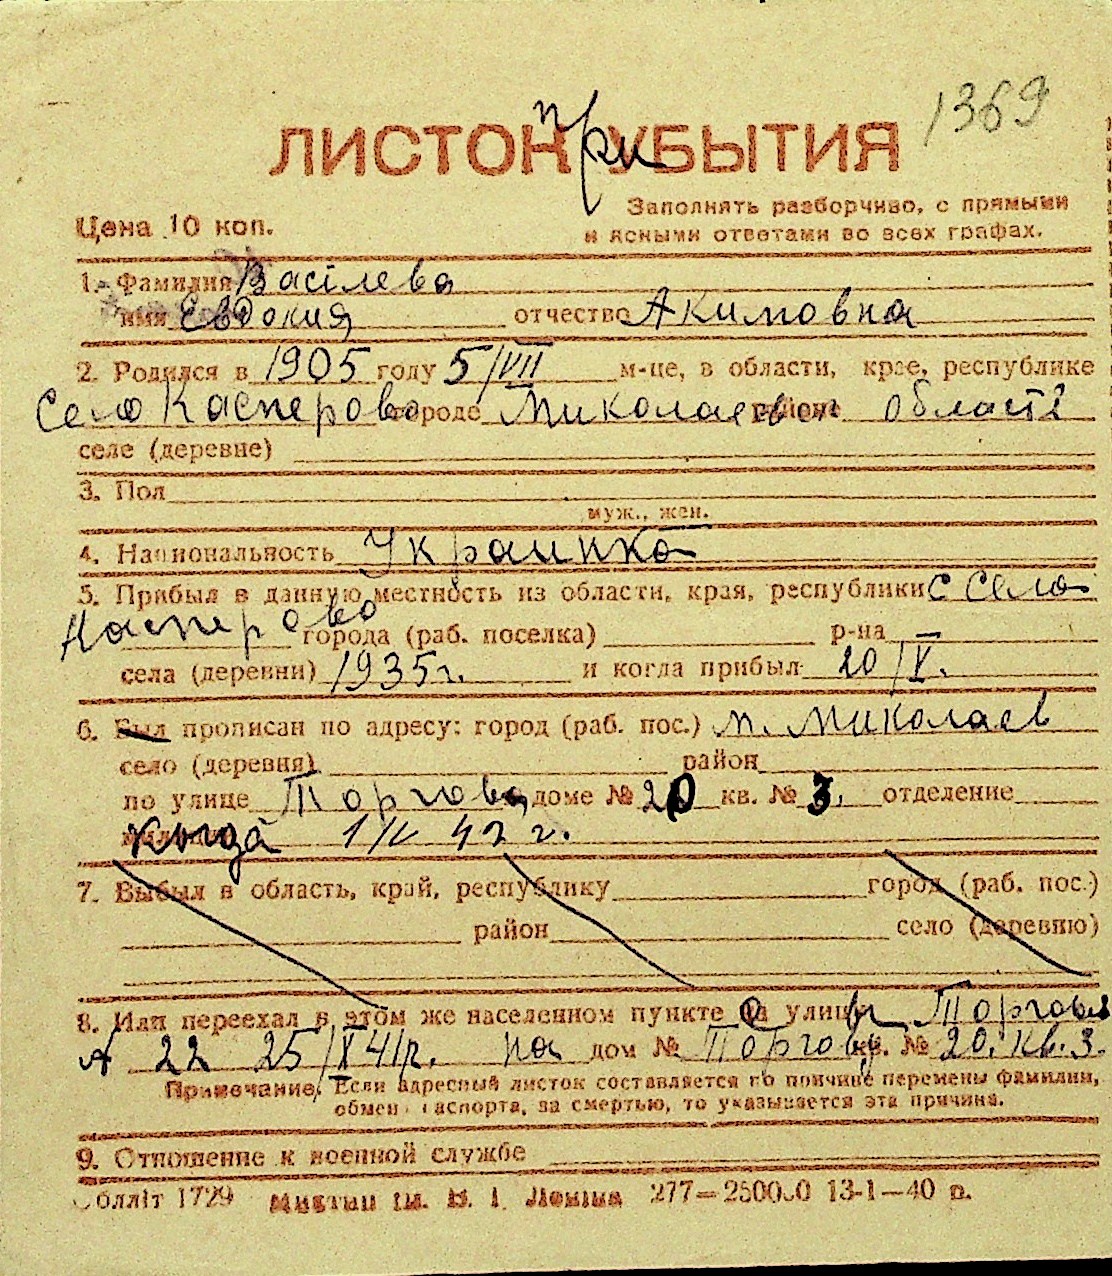 1369
ЛИСТОК при УБЫТИЯ
Заполнять разборчиво, с прямыми
Цена 10 коп.
и ясными ответами во всех графах.
1. Фамилия Васілева
имя Евдокия отчество Акимовна
2. Родился в 1905 году 5/VII м-це, в области, крае, республике
Село Касперово городе Миколаевск районе област
селе (деревне)
3. Пол
муж., жен.
4. Национальность Украинка
5. Прибыл в данную местность из области, края, республики с Села
Касперово города (раб. поселка) р-на
села (деревни) 1935г. и когда прибыл 20/V.
6. Был прописан по адресу: город (раб. пос.) м. Миколаев
село (деревня) район
по улице Торгова доме № 20 кв. № 3. отделение
Когда 42 г.
7. Выбыл в область, край, республику город (раб. пос.)
район село (деревню)
8. Или переехал в этом же населенном пункте улицы Торговая
22 25/X 41 г. на дом № Торгову кв. № 20. кв. 3.
Примечание. Если адресный листок составляется по причине перемены фамилии,
обмен паспорта, за смертью, то указывается эта причина.
9. Отношение к военной службе
Облліт 1729 Миктип ім. В. І. Леніна 277— 13-1—40 р.